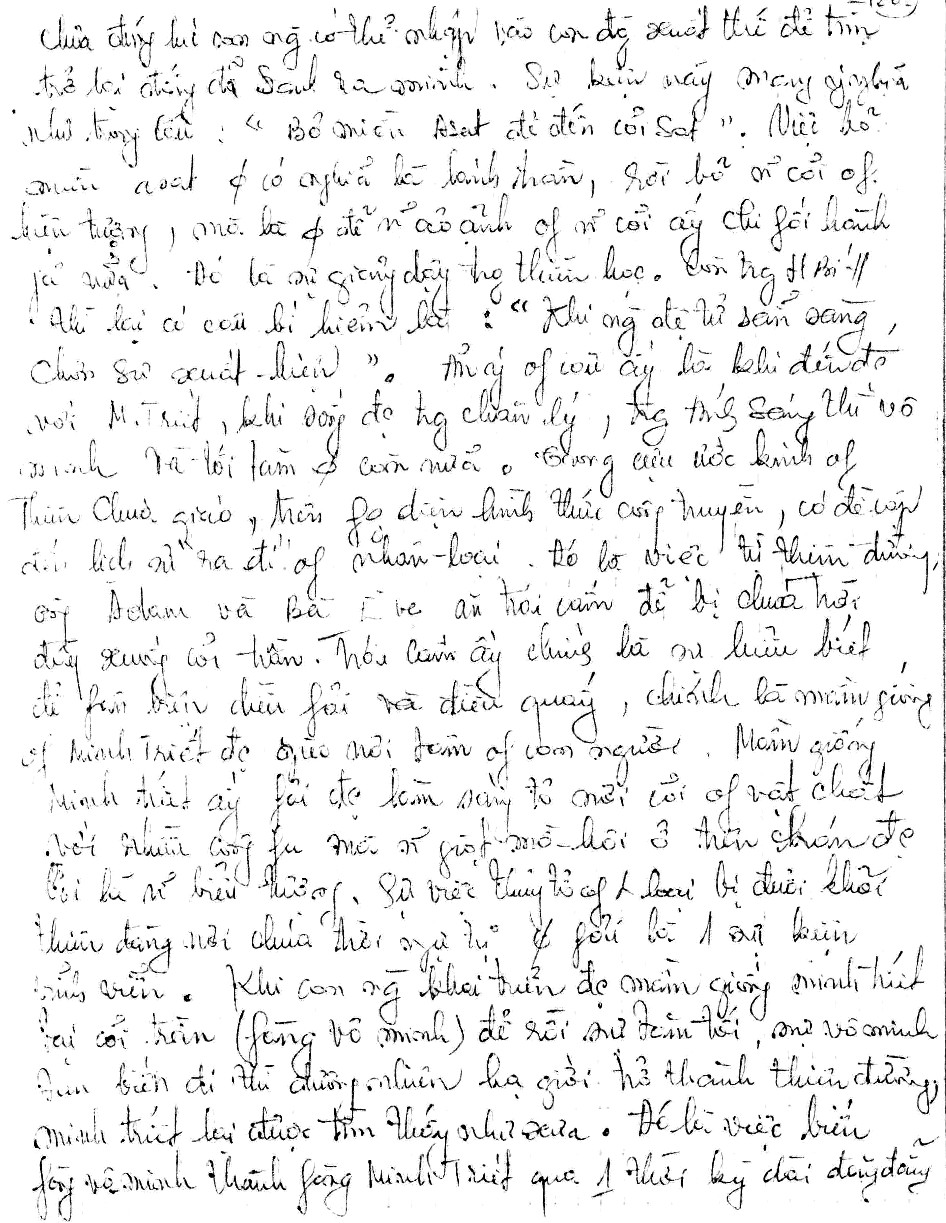 chứa đựng khi con ng có thể nhập vào con đg xuất thế để tìm
trở lại đấng đã Sanh ra mình. Sự kiện này mang ý nghĩa
như trong câu : " Bỏ miền Asat để đến cõi Sat ". Việc bỏ
miền asat ∮ có nghĩa là lánh trần, rời bỏ ~ cõi of
hiện tượng, mà là ∮ để ~ ảo ảnh of ~ cõi ấy chi fối hành
giả nữa. Đó là sự giảng dạy trg thiền học. Còn trg
thì lại có câu bí hiểm là : " Khi ng đệ tử sẵn sàng,
Chơn Sư xuất-hiện ". Ẩn ý of câu ấy là khi đến đc
với M. Triết, khi sống đc trg chân lý, trg ánh Sáng thì vô
minh và tối tăm ∮ còn nữa. Trong cựu ước kinh of
Thiên Chúa giáo, trên fg diện hình thức công truyền, có đề cập
đến lịch sử "ra đi" of nhân-loại. Đó là việc từ thiên đường,
ông Adam và Bà Eve ăn trái cấm để bị chúa trời
đầy xuống cõi trần. Trái Cấm ấy chính là sự hiểu biết,
để fân biện điều fải và điều quấy, chính là mầm giống
of Minh Triết đc gieo nơi tâm of con người. Mầm giống
Minh triết ấy fải đc làm sáng tỏ nơi cõi of vật chất
với nhiều công fu mà ~ giọt mồ-hôi ở trên trán đc
coi là ~ biểu tượng. Sự việc thủy tổ of loài bị đuổi khỏi
thiên đàng nơi chúa trời ngự trị ∮ fải là 1 sự kiện
vĩnh viễn. Khi con ng khai triển đc mầm giống minh triết
tại cõi trần (fàng vô minh) để rồi sự tăm tối, sự vô minh
tan biến đi thì đương nhiên hạ giới trở thành thiên đường,
minh triết lại được tìm thấy như xưa. Đó là việc biến
fàng vô minh thành fàng Minh Triết qua 1 thời kỳ dài đằng đẵng